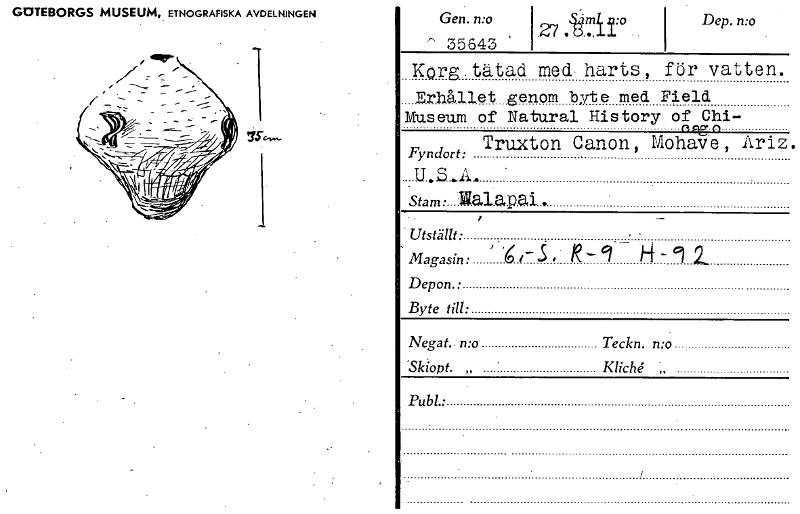 GÖTEBORGS MUSEUM, ETNOGRAFISKA AVDELNINGEN
35 cm
Gen. n:o Saml. n:o Dep. n:o
35643 27.8.11
Korg tätad med harts, för vatten.
Erhållet genom byte med Field
Museum of Natural History of Chi-
cago
Fyndort: Truxton Canon, Mohave, Ariz.
U.S.A.
Stam: Walapai.
Utställt:
Magasin: 6,-S. R-9 H-92
Depon.:
Byte till:
Negat. n:o Teckn. n:o
Skiopt. „ Kliché „
Publ.: